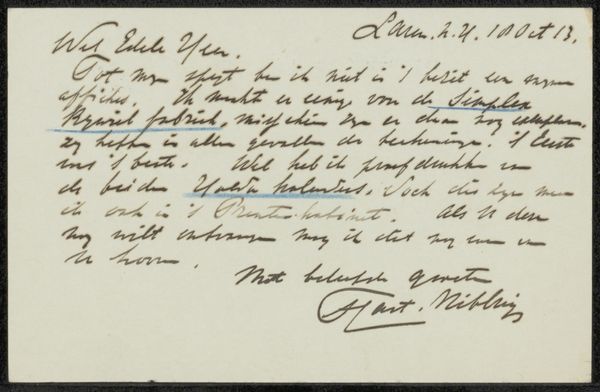 Laren. N.H. 18 Oct 13.
Wel Edele Heer.
Tot mijn spijt ben ik niet in 't bezit van mijne
affiches. Ik maakt er eenige voor de Simplex
Rijwiel fabriek, misschien zijn er daar nog exemplaren.
zij hebben in allen gevallen de teekeningen. 't Eerste
was 't beste. Wel heb ik proefdrukken van
de beiden Holda kalenders. Doch die zijn meen
ik ook in 't Prenten-kabinet. Als U deze
nog wilt ontvangen mag ik dat nog eens van
U hooren.
Met beleefde groeten
Hart. Nibbrig